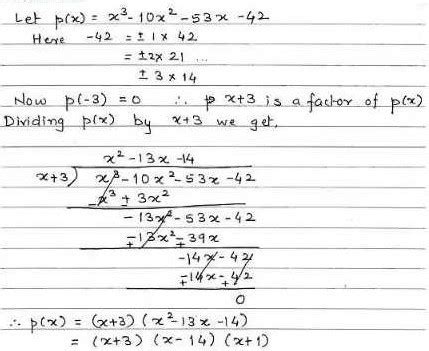 Let p(x) = x³ - 10x² - 53x - 42
Here -42 = ± 1 x 42
= ± 2 x 21 ...
± 3 x 14
Now p(-3) = 0 ∴ x+3 is a factor of p(x)
Dividing p(x) by x+3 we get,
x² - 13x - 14
x+3) x³ - 10x² - 53x - 42
- x³ ± 3x²
- 13x² - 53x - 42
∓ 13x² ∓ 39x
- 14x - 42
∓ 14x ∓ 42
0
∴ p(x) = (x+3) (x² - 13x - 14)
= (x+3) (x - 14) (x+1)